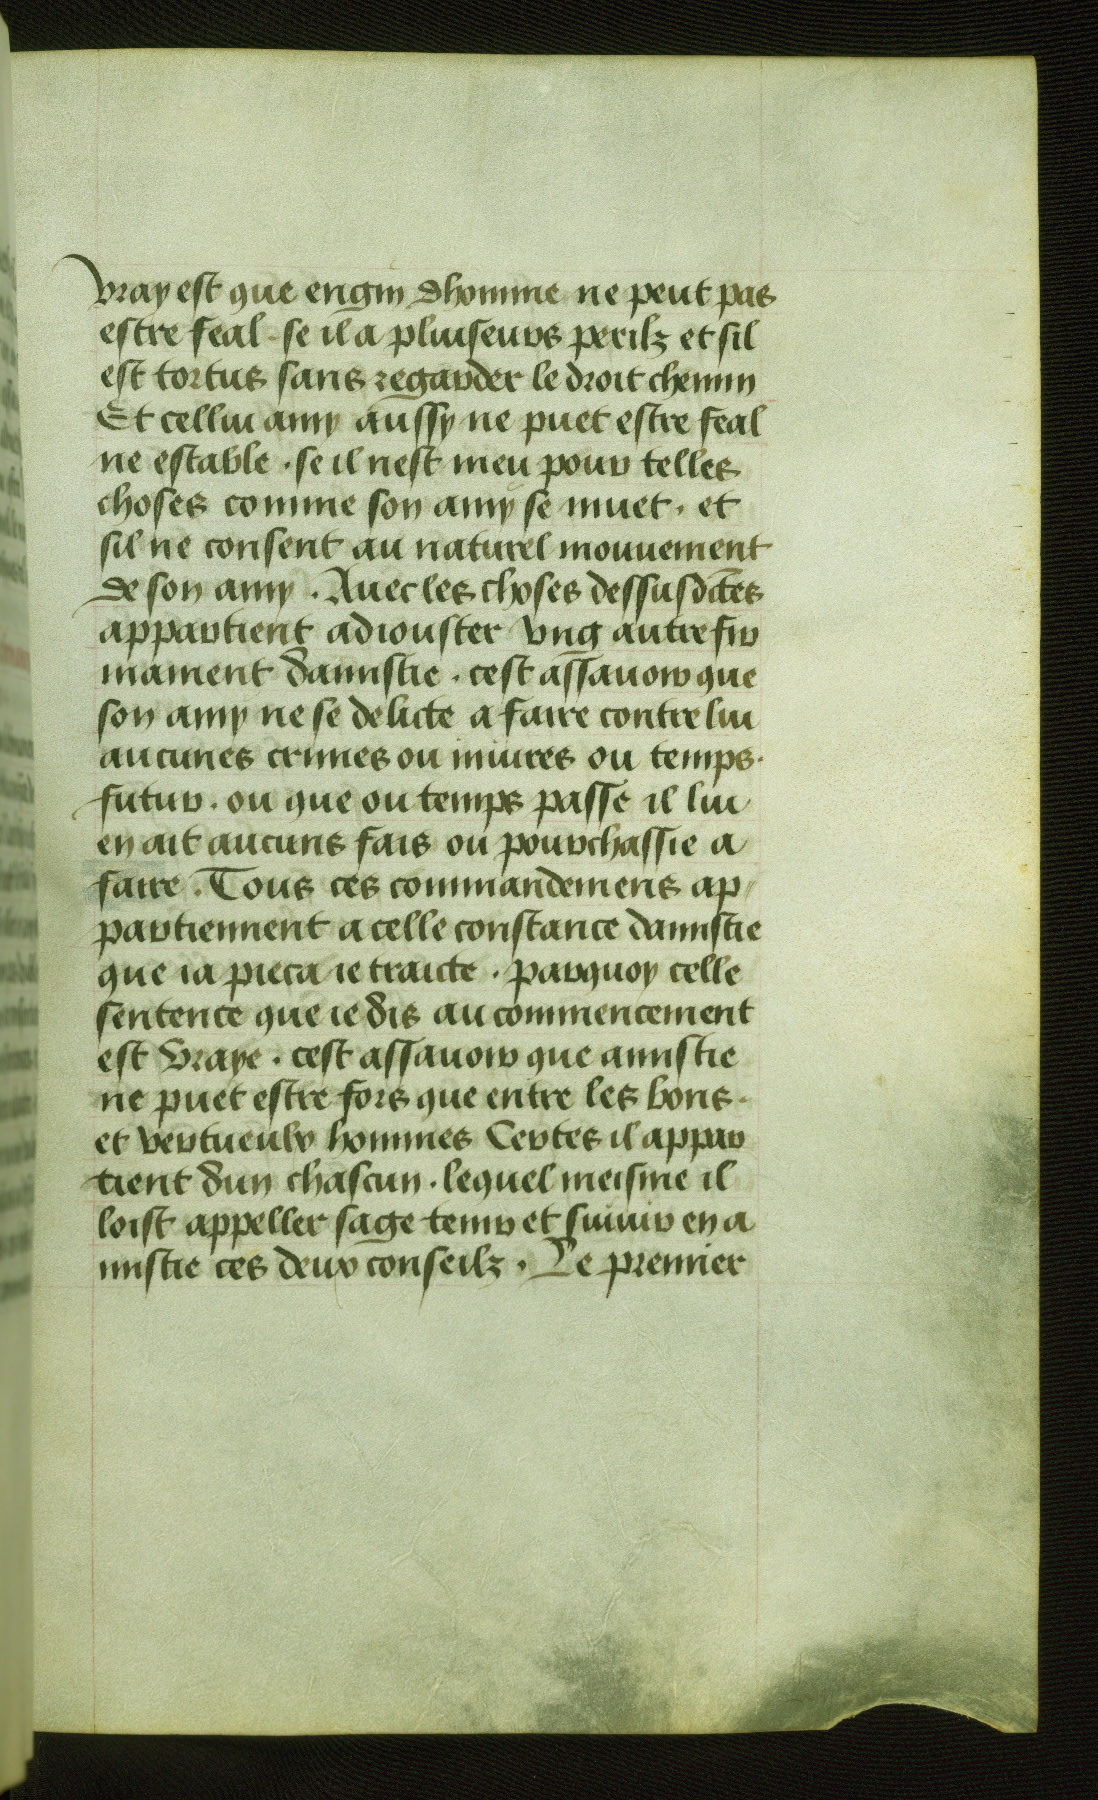 vray est que engin dhomme ne peut pas
estre feal · se il a pluiseurs perilz et sil
est tortus sans regarder le droit chemin
Et cellui amy aussy ne puet estre feal
ne estable · se il nest meu pour telles
choses comme son amy se muet · et
sil ne consent au naturel mouuement
de son amy · Auec les choses dessusdctes
appartient adiouster vng autre fir
mament damistie · cest assauoir que
son amy ne se delicte a faire contre lui
aucunes crimes ou iniures ou temps ·
futur · ou que ou temps passe il lui
en ait aucuns fais ou pourchassie a
faire · Tous ces commandemens ap/
partiennent a celle constance damistie
que ia pieca ie traicte · parquoy celle
sentence que ie dis au commencement
est vraye · cest assauoir que amistie
ne puet estre fors que entre les bons ·
et vertueulx hommes Certes il appar
tient dun chascun · lequel meisme il
loist appeller sage tenir et suiuir en a
mistie ces deux conseilz · Le premier